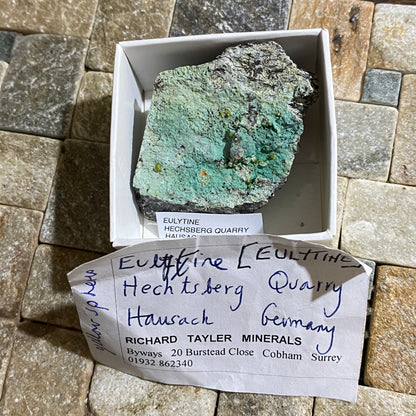 EULYTINE
HECHSBERG QUARRY
HAUSACH
Eulytine [EULYTINE]
Hechtsberg Quarry
Hausach Germany
yellow spheres
RICHARD TAYLER MINERALS
Byways 20 Burstead Close Cobham Surrey
01932 862340